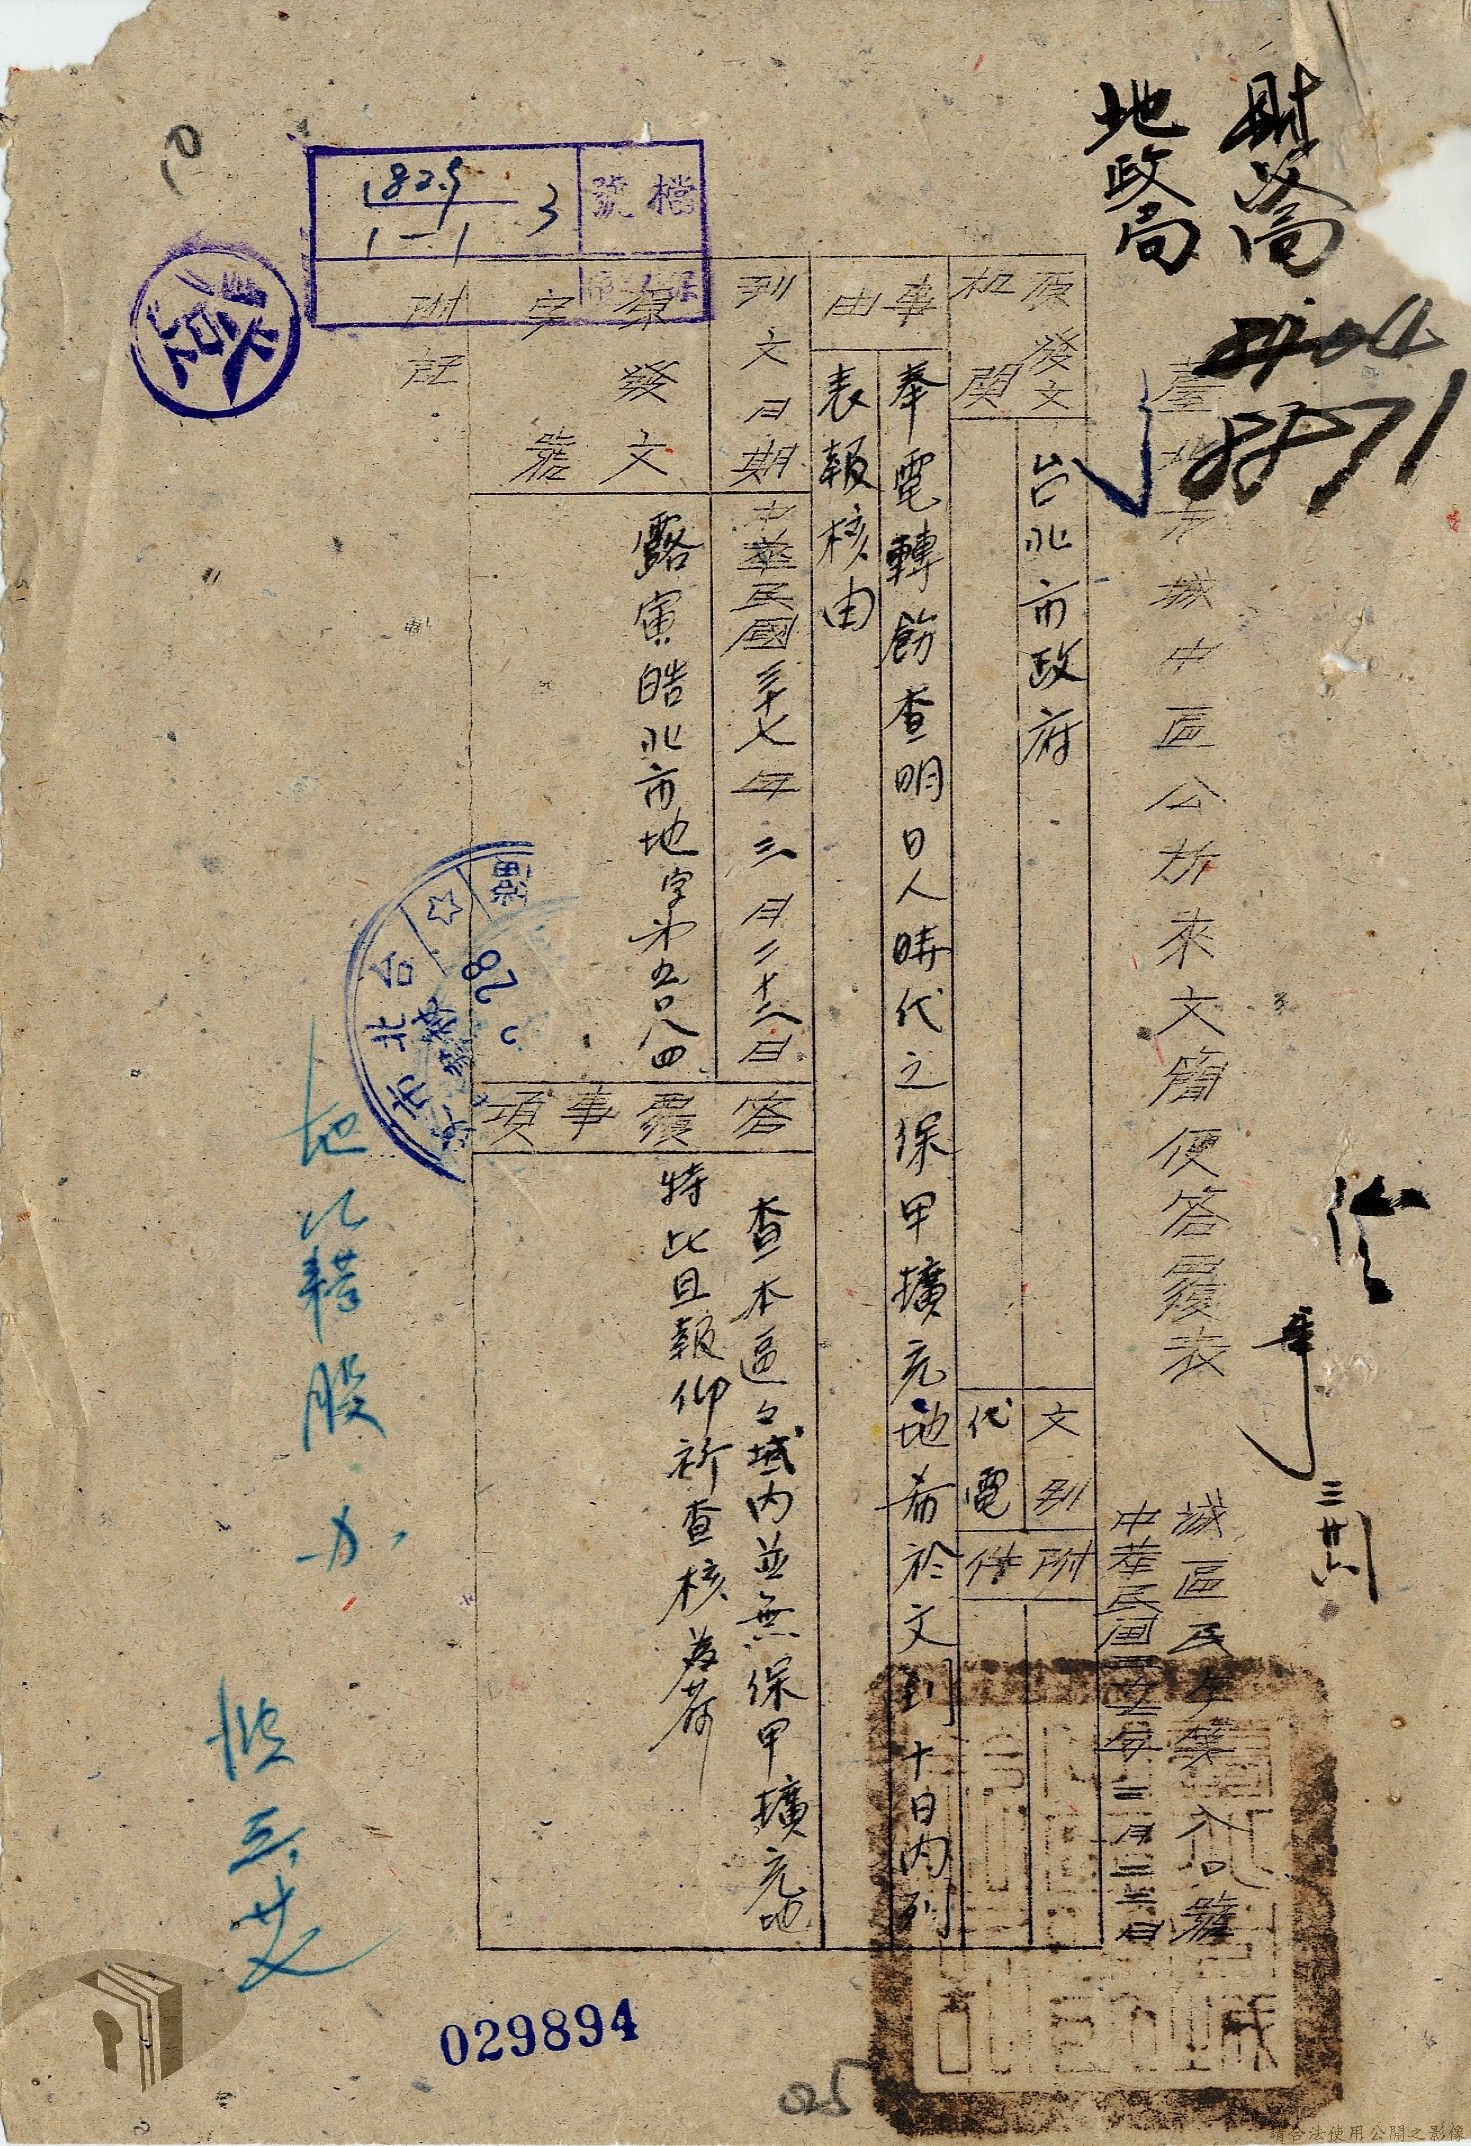 地政局
臺北市城中區公所來文簡便答覆表
城區民字第八〇號
中華民國三七年三月二六日
原發文机関
台北市政府
文別
代電
附件
事由
奉電轉飭查明日人時代之保甲擴充地希於文到十日內列
表報核由
到文日期
中華民國三十七年三月二十六日
原發文字號
露寅皓北市地字第五〇八四
答覆事項
查本區々域內並無保甲擴充地
特此具報仰祈查核為荷
附註
檔號
1829
1-1
3
地籍股
三
029894
025
8571
台北市
28
請合法使用公開之影像